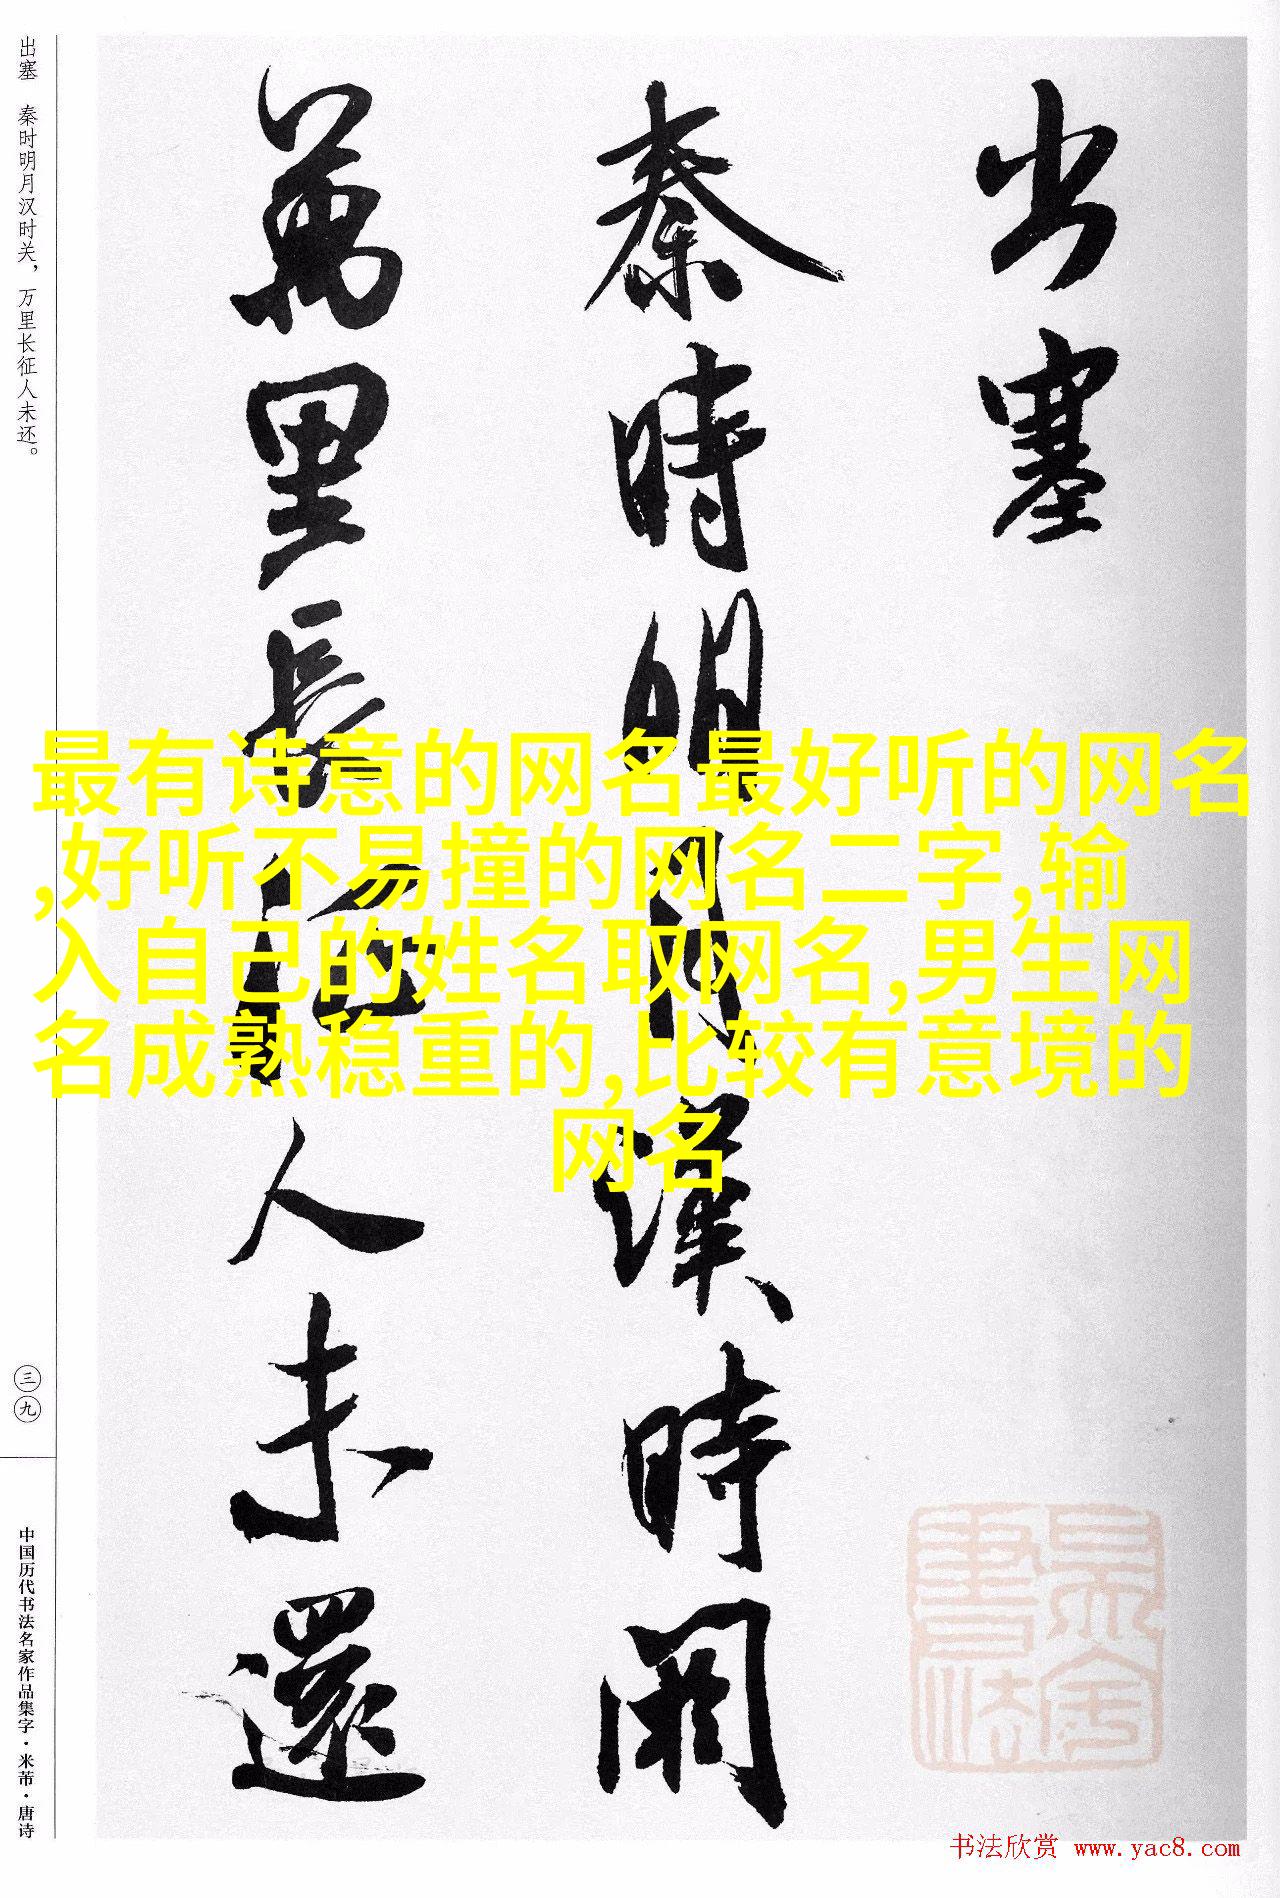 出塞
秦時明月漢時関
萬里長征人未還
出塞 秦时明月汉时关，万里长征人未还。
三九
中国历代书法名家作品集字·米芾·唐诗
最有诗意的网名最好听的网名
,好听不易撞的网名二字,输
入自己的姓名取网名,男生网
名成熟稳重的,比较有意境的
网名
书法欣赏 www.yac8.com